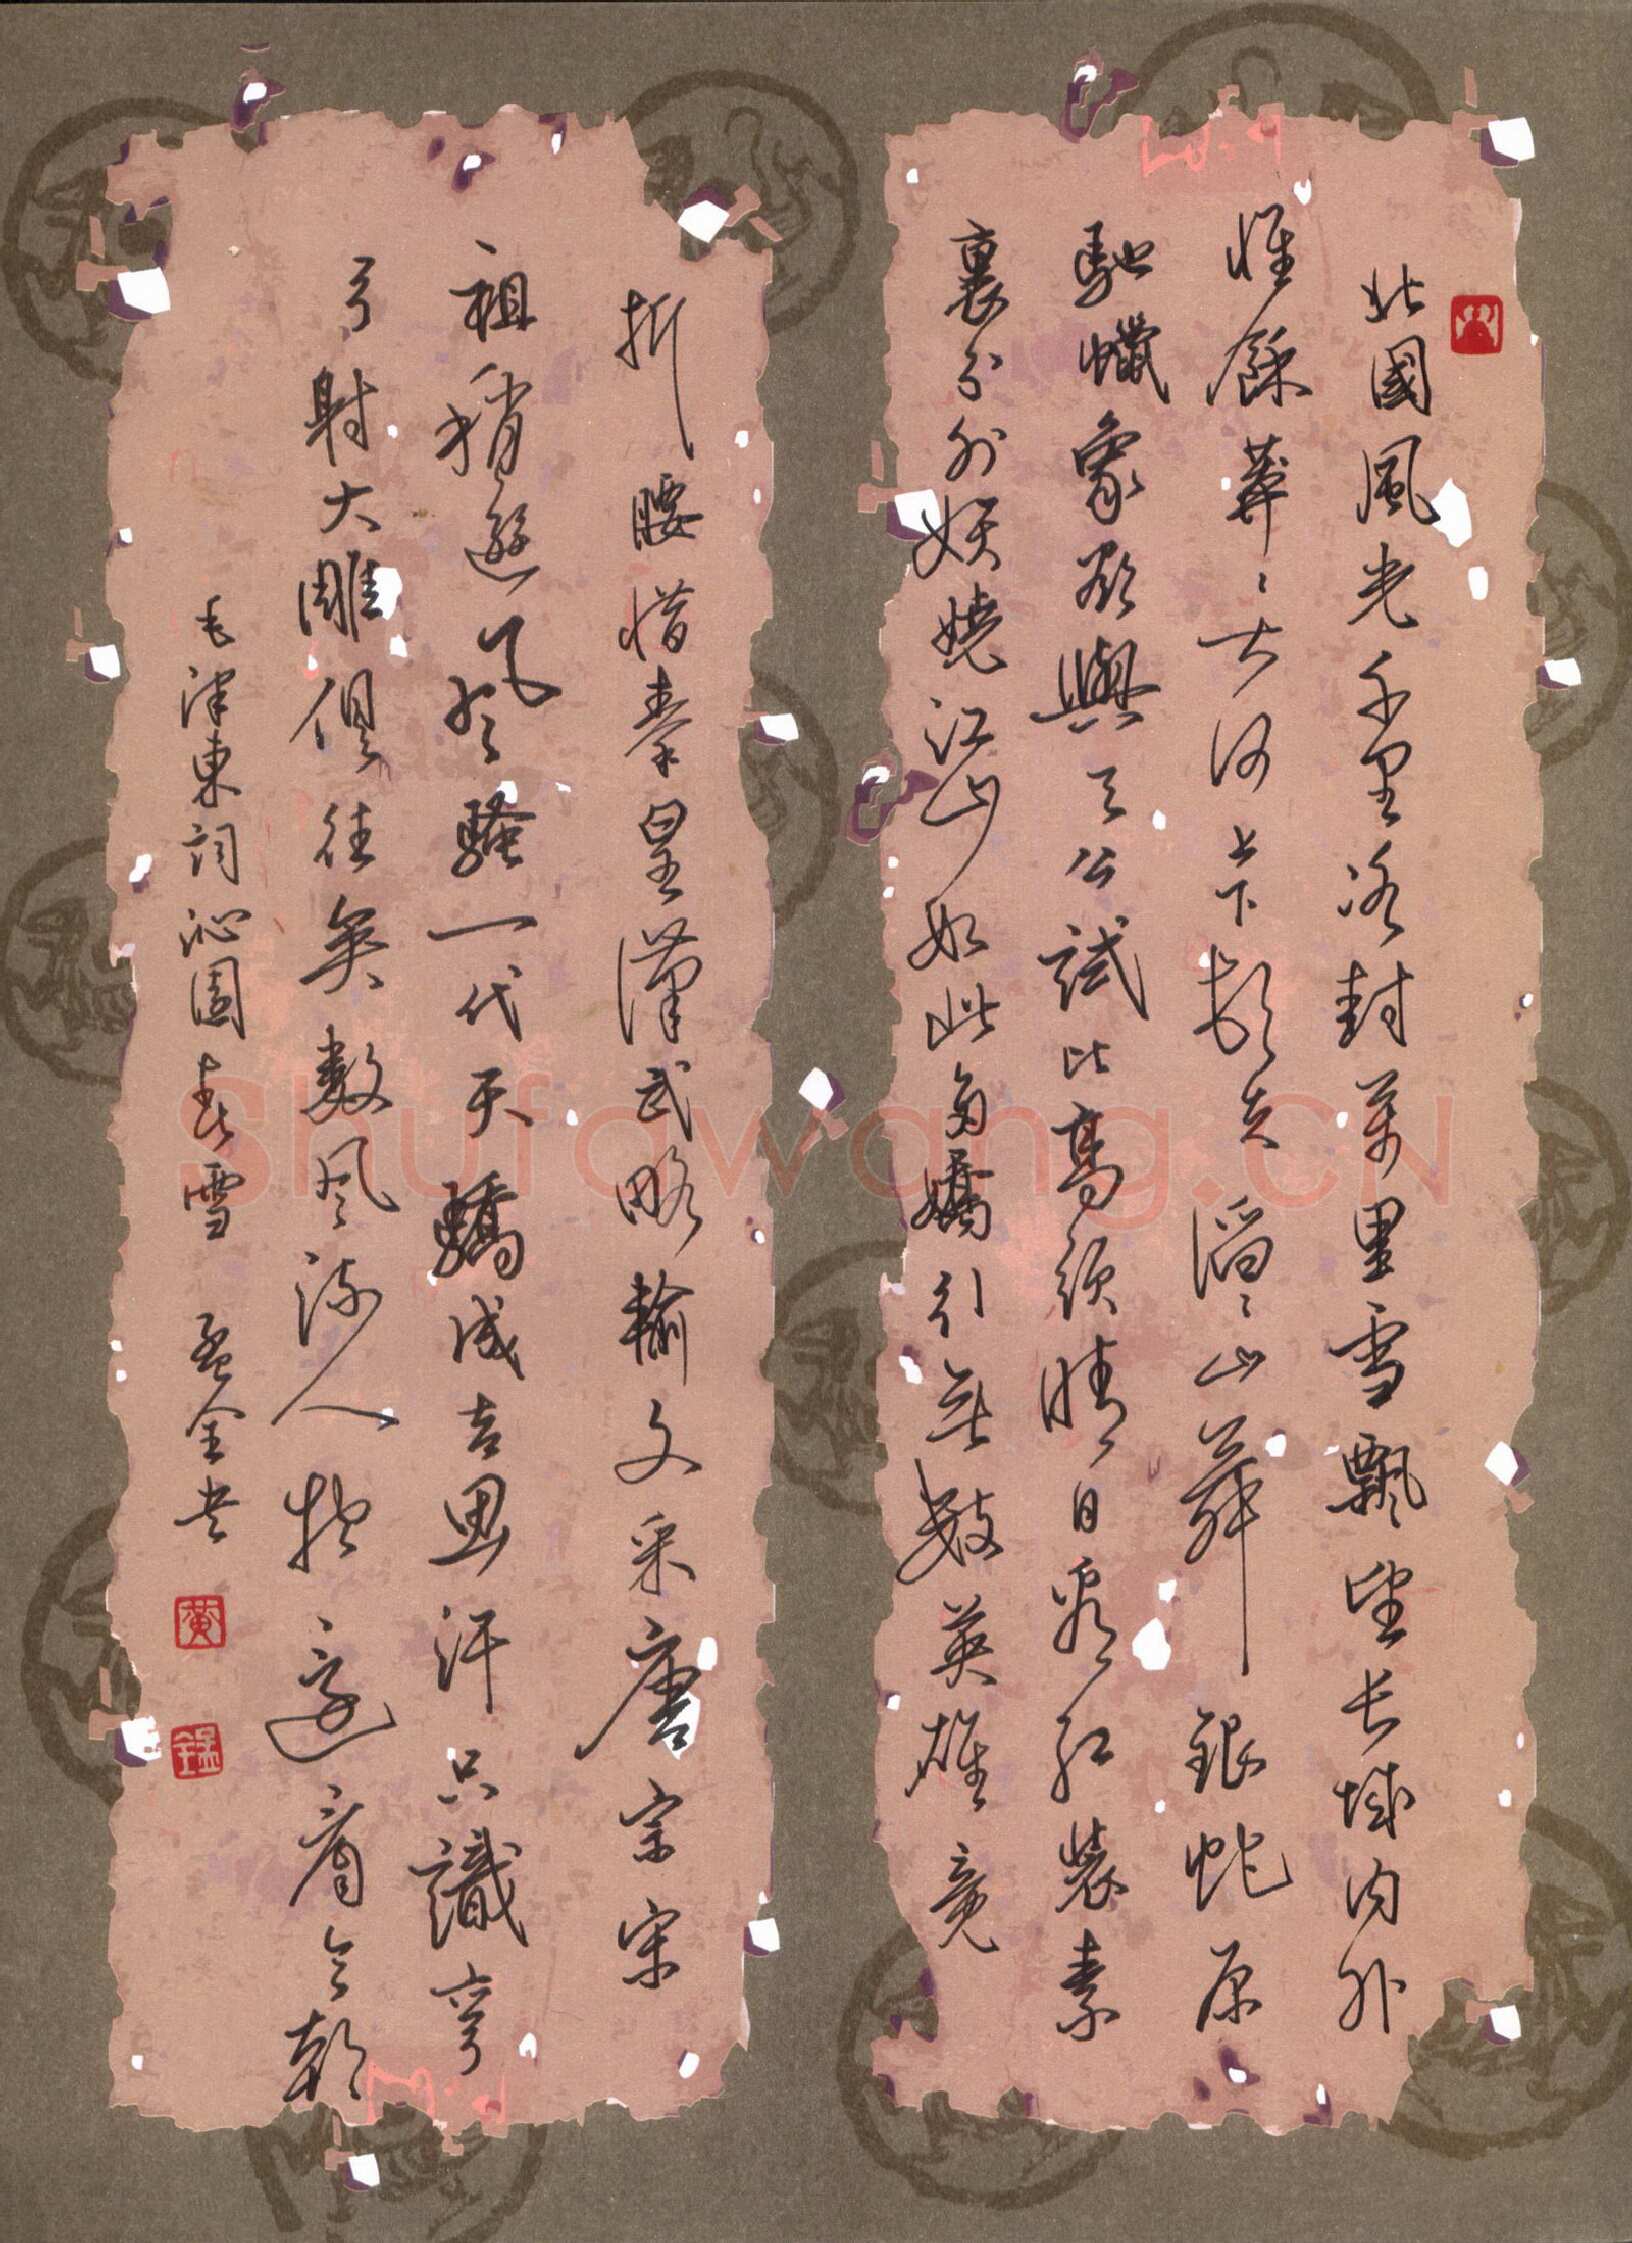 北國風光千里冰封萬里雪飄望长城内外
惟餘莽〻大河上下頓失滔〻山舞銀蛇原
馳蠟象欲與天公試比高須晴日看红裝素
裹分外妖嬈江山如此多嬌引無數英雄竞
折腰惜秦皇漢武略輸文采唐宗宋
祖稍遜风騷一代天驕成吉思汗只識彎
弓射大雕俱往矣數风流人物還看今朝
毛泽東詞沁園春雪 孟金
黄
锰
Shufawang.CN